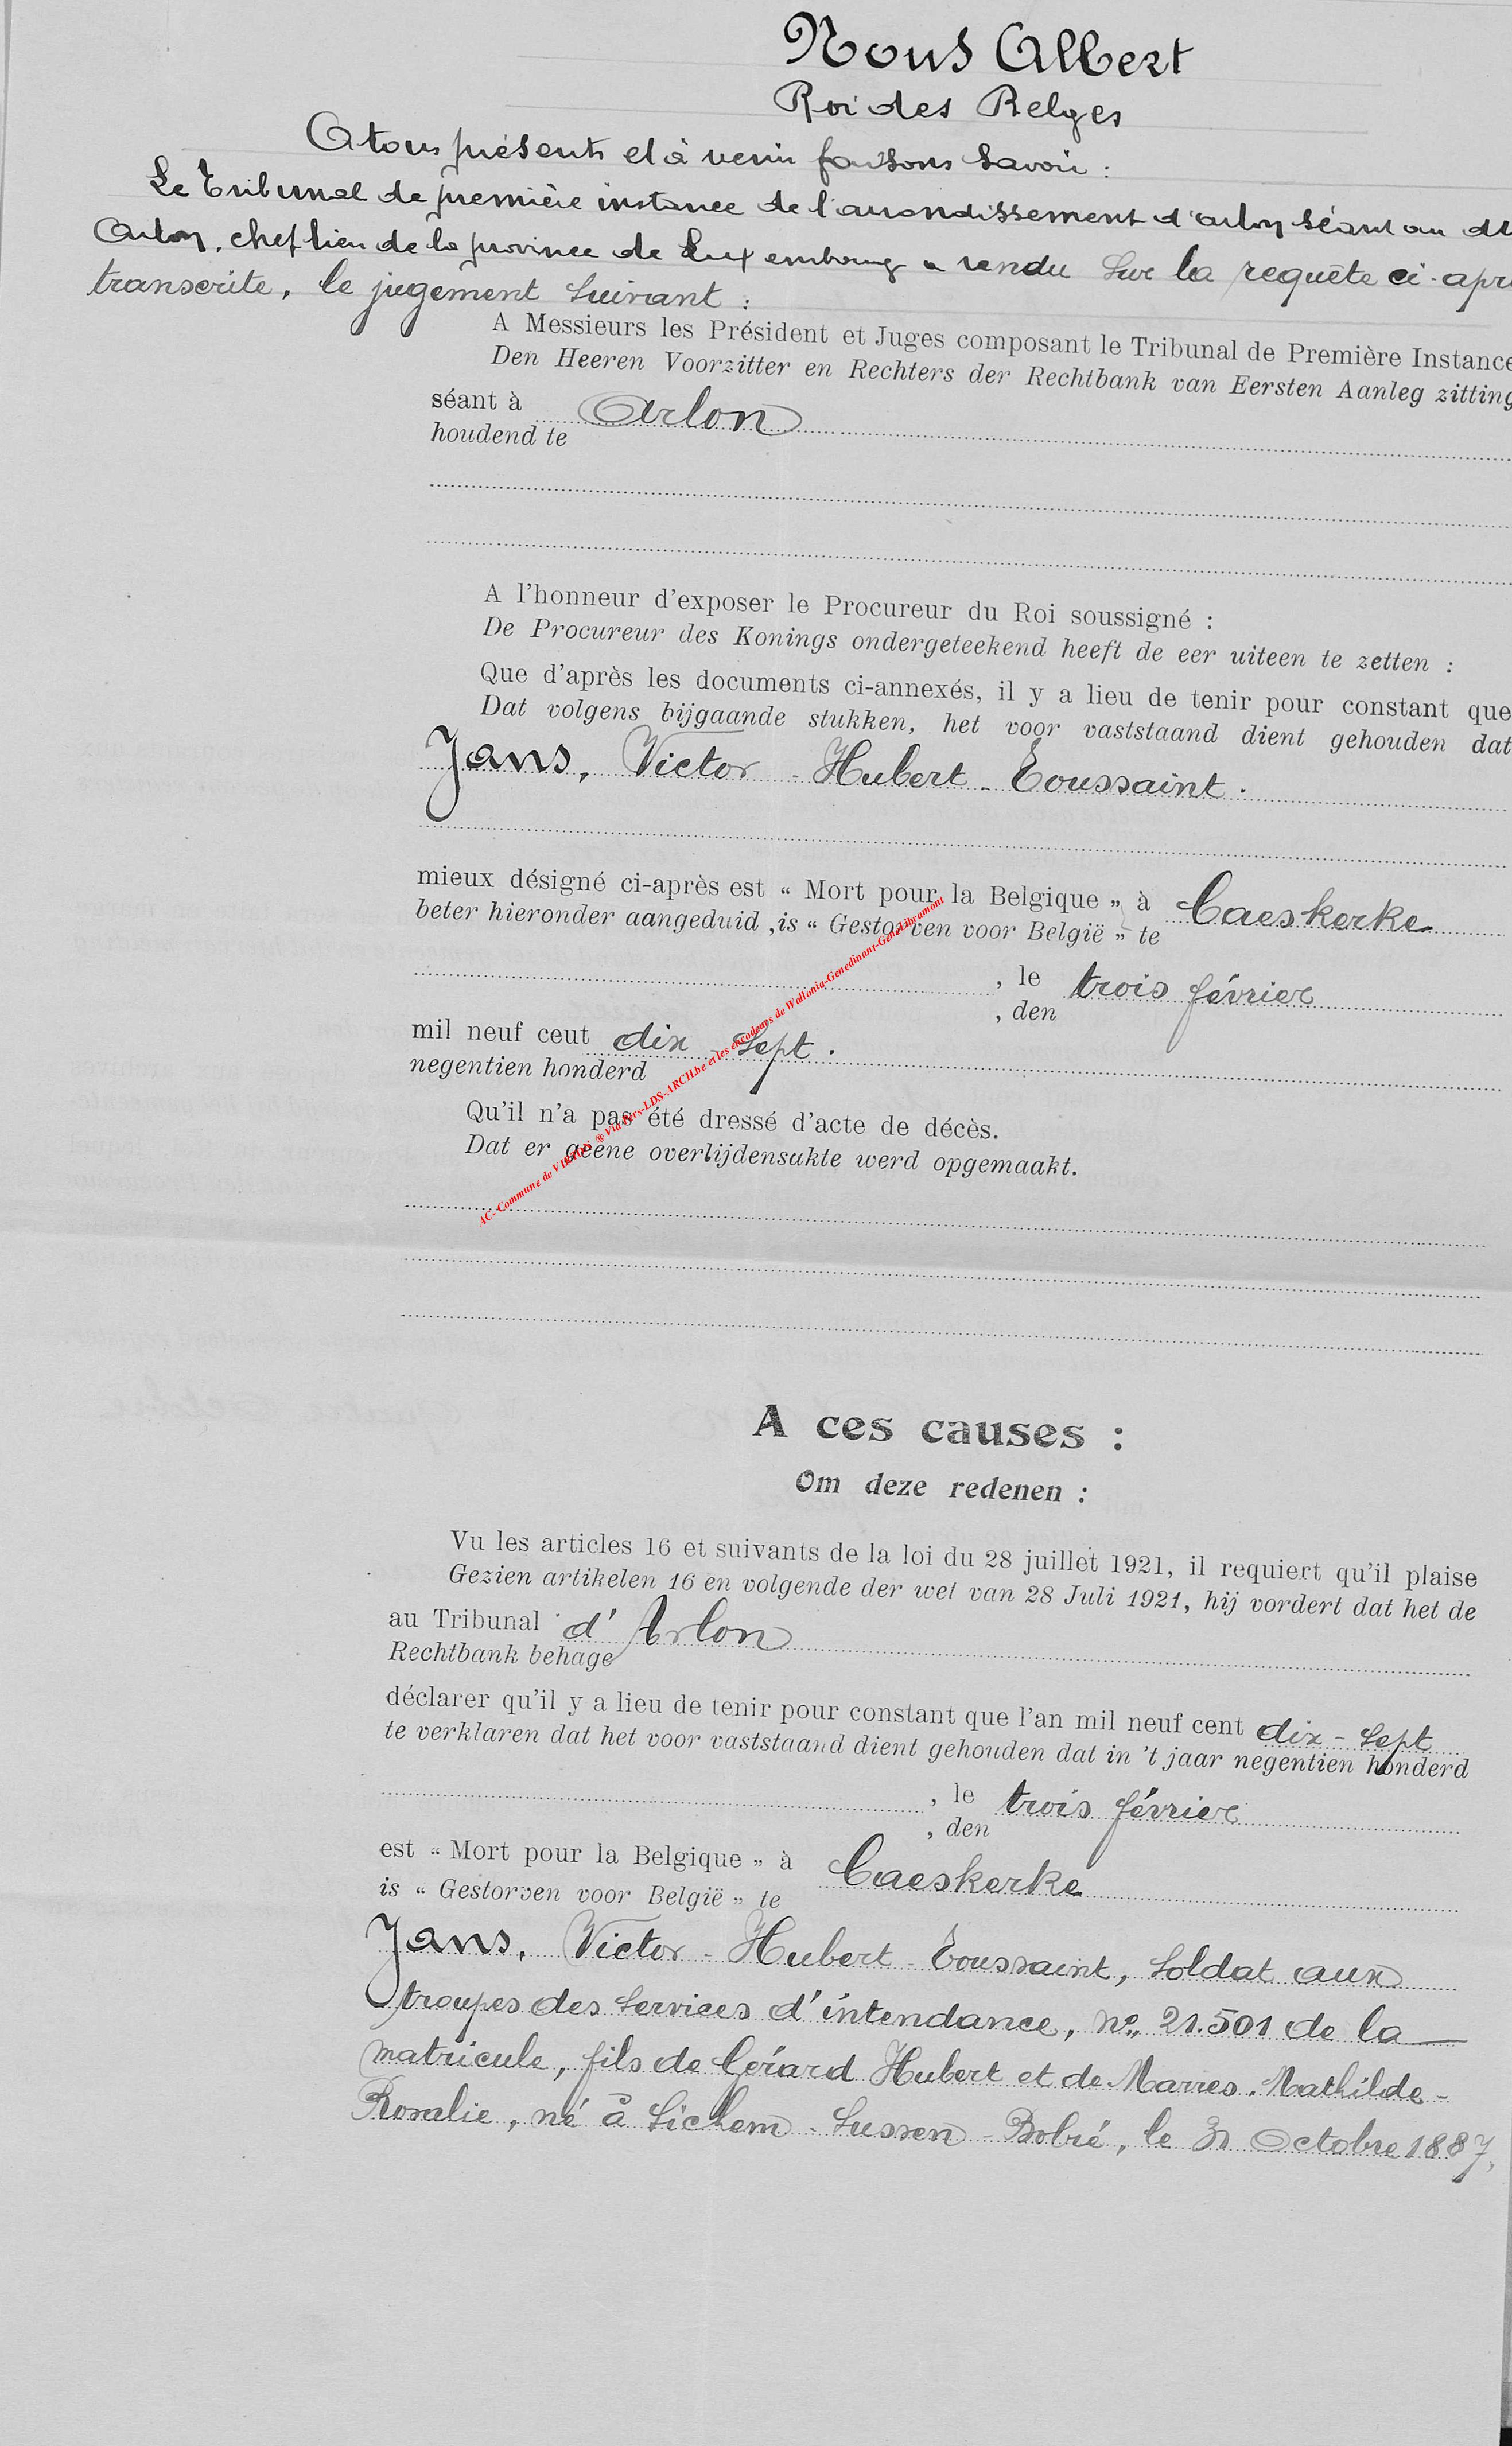 Nous Albert
Roi des Belges
A tous présents et à venir faisons savoir :
Le Tribunal de première instance de l'arrondissement d'arlon séant au dit
Arlon, chef lieu de la province de Luxembourg a rendu sur la requête ci-apr
transcrite, le jugement suivant :
A Messieurs les Président et Juges composant le Tribunal de Première Instance
Den Heeren Voorzitter en Rechters der Rechtbank van Eersten Aanleg zitting
séant à Arlon
houdend te
A l'honneur d'exposer le Procureur du Roi soussigné :
De Procureur des Konings ondergeteekend heeft de eer uiteen te zetten :
Que d'après les documents ci-annexés, il y a lieu de tenir pour constant que
Dat volgens bijgaande stukken, het voor vaststaand dient gehouden dat
Jans, Victor - Hubert - Toussaint.
mieux désigné ci-après est « Mort pour la Belgique » à Caeskerke
beter hieronder aangeduid ,is « Gestorven voor België » te
, le trois février
, den
mil neuf ceut dix - sept.
negentien honderd
Qu'il n'a pas été dressé d'acte de décès.
Dat er geene overlijdensakte werd opgemaakt.
AC- Commune de VIRTON ® Via Vers-LDS-ARCH.be et les encodeurs de Wallonia-Genedinant-GeneLibramont
A ces causes :
Om deze redenen :
Vu les articles 16 et suivants de la loi du 28 juillet 1921, il requiert qu'il plaise
Gezien artikelen 16 en volgende der wet van 28 Juli 1921, hij vordert dat het de
au Tribunal d'Arlon
Rechtbank behage
déclarer qu'il y a lieu de tenir pour constant que l'an mil neuf cent dix - sept
te verklaren dat het voor vaststaand dient gehouden dat in 't jaar negentien honderd
, le trois février
, den
est « Mort pour la Belgique » à Caeskerke
is « Gestorven voor België » te
Jans, Victor - Hubert - Toussaint, soldat aux
troupes des services d'intendance, n° 21.501 de la
matricule, fils de Gérard Hubert et de Marres. Mathilde -
Rosalie, né à Sichem - Sussen - Bolré, le 31 Octobre 1887,